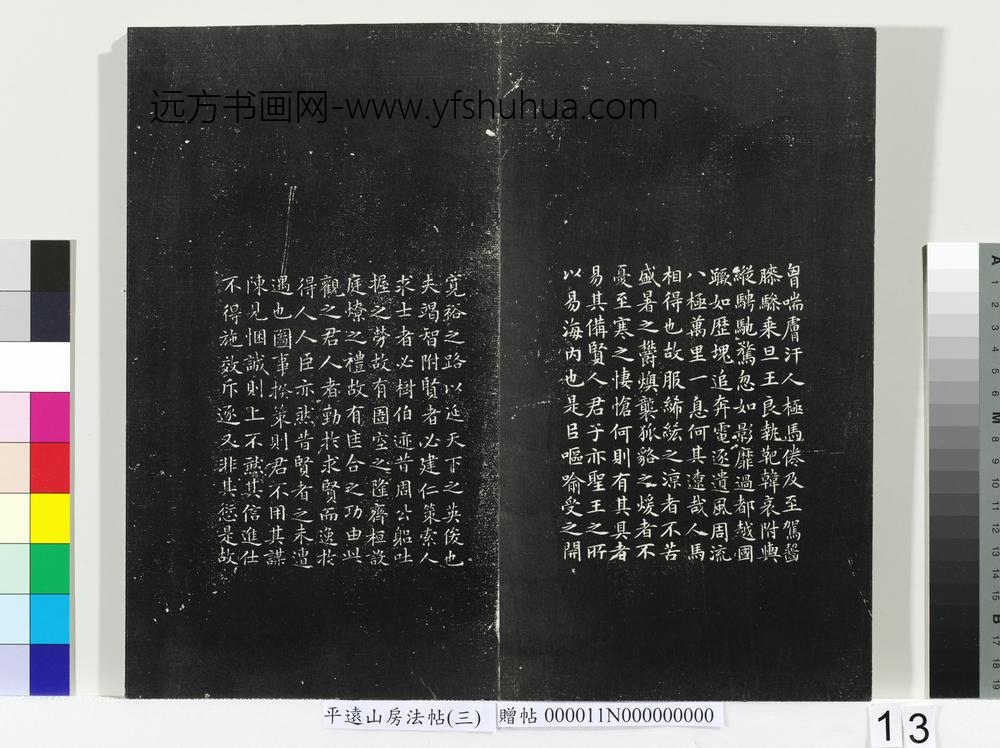 远方书画网-www.yfshuhua.com
胷喘膚汗人極馬倦及至駕齧
膝驂乘旦王良執靶韓哀附輿
縱騁馳騖忽如影靡過都越國
蹶如歷塊追奔電逐遺風周流
八極萬里一息何其遼哉人馬
相得也故服絺綌之涼者不苦
盛暑之鬱燠襲狐貉之煖者不
憂至寒之悽愴何則有其具者
易其備賢人君子亦聖王之所
以易海內也是㠯嘔喻受之開
寬裕之路以延天下之英俊也
夫竭智附賢者必建仁策索人
求士者必樹伯迹昔周公躬吐
握之勞故有圄空之隆齊桓設
庭燎之禮故有匡合之功由此
觀之君人者勤於求賢而逸於
得人人臣亦然昔賢者之未遭
遇也圖事揆策則君不用其謀
陳見悃誠則上不然其信進仕
不得施效斥逐又非其愆是故
平遠山房法帖(三) 贈帖 000011N000000000
13